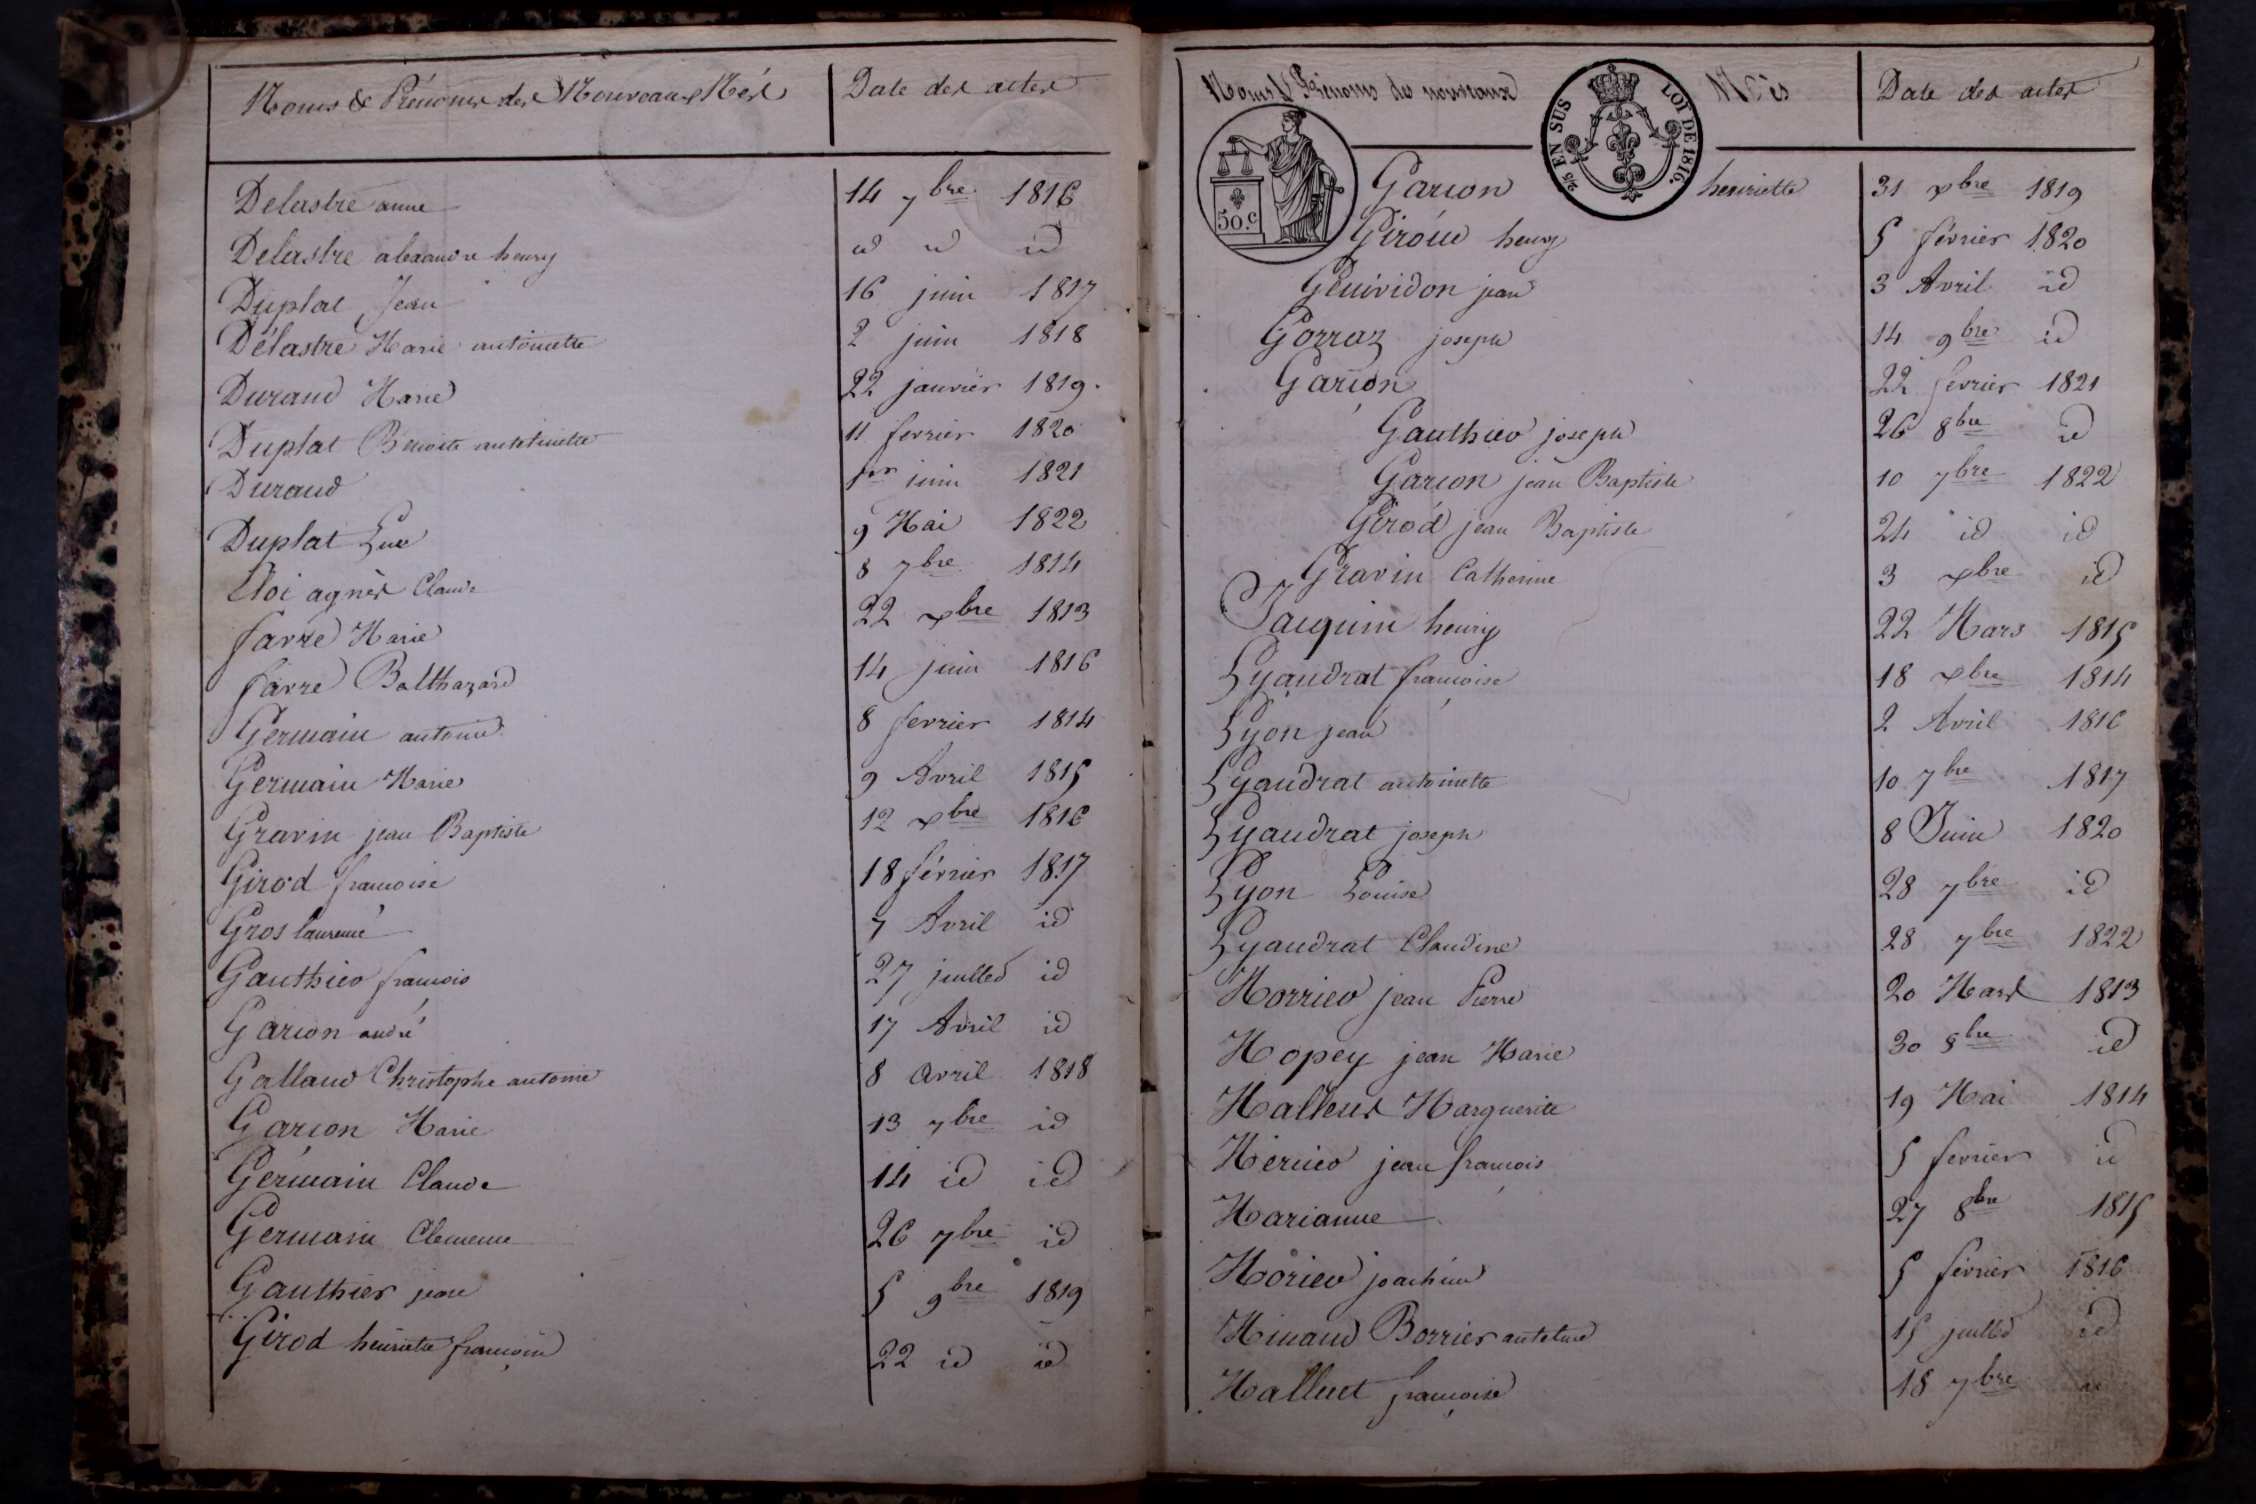 Noms & Prénoms des Nouveaux Nés Date des actes
Delastre anne 14 7bre 1816
Delastre alexandre henry id id id
Duplat Jean 16 juin 1817
Délastre Marie antoinette 2 juin 1818
Durand Marie 22 janvier 1819.
Duplat Benoite 11 fevrier 1820
Durand 1er juin 1821
Duplat Luc 9 Mai 1822
Eloi agnès Claude 8 7bre 1814
favre Marie 22 xbre 1813
favre Balthazard 14 juin 1816
Germain antoine 8 fevrier 1814
Germain Marie 9 Avril 1815
Gravin jean Baptiste 12 xbre 1816
Girod francoise 18 février 1817
Gros 7 Avril id
Gauthier francois 27 juillet id
Garion andré 17 Avril id
Galland Christophe antoine 8 avril 1818
Garion Marie 13 7bre id
Germain Claude 14 id id
Germain Clemence 26 7bre id
Gauthier 5 9bre 1819
Girod henriette francoise 22 id id
Noms & Prénoms des nouveaux Nés Date des actes
2/5 EN SUS LOI DE 1816.
50.c
Garion henriette 31 xbre 1819
Giroud henry 5 février 1820
jean 3 Avril id
Gorraz joseph 14 9bre id
Garion 22 fevrier 1821
Gauthier joseph 26 8bre id
Garion jean Baptiste 10 7bre 1822
Girod jean Baptiste 24 id id
Gravin Catherine 3 xbre id
Jacquin henry 22 Mars 1815
Lyaudrat françoise 18 xbre 1814
Lyon jean 2 Avril 1816
Lyaudrat antoinette 10 7bre 1817
Lyaudrat joseph 8 Juin 1820
Lyon Louise 28 7bre id
Lyaudrat Claudine 28 7bre 1822
Morrier jean Pierre 20 Mars 1813
Mopey jean Marie 30 8bre id
Marguerite 19 Mai 1814
Mercier jean françois 5 fevrier id
Marianne 27 8bre 1815
Morier joachim 5 février 1816
Borrier 15 juillet id
Malluet françoise 18 7bre id